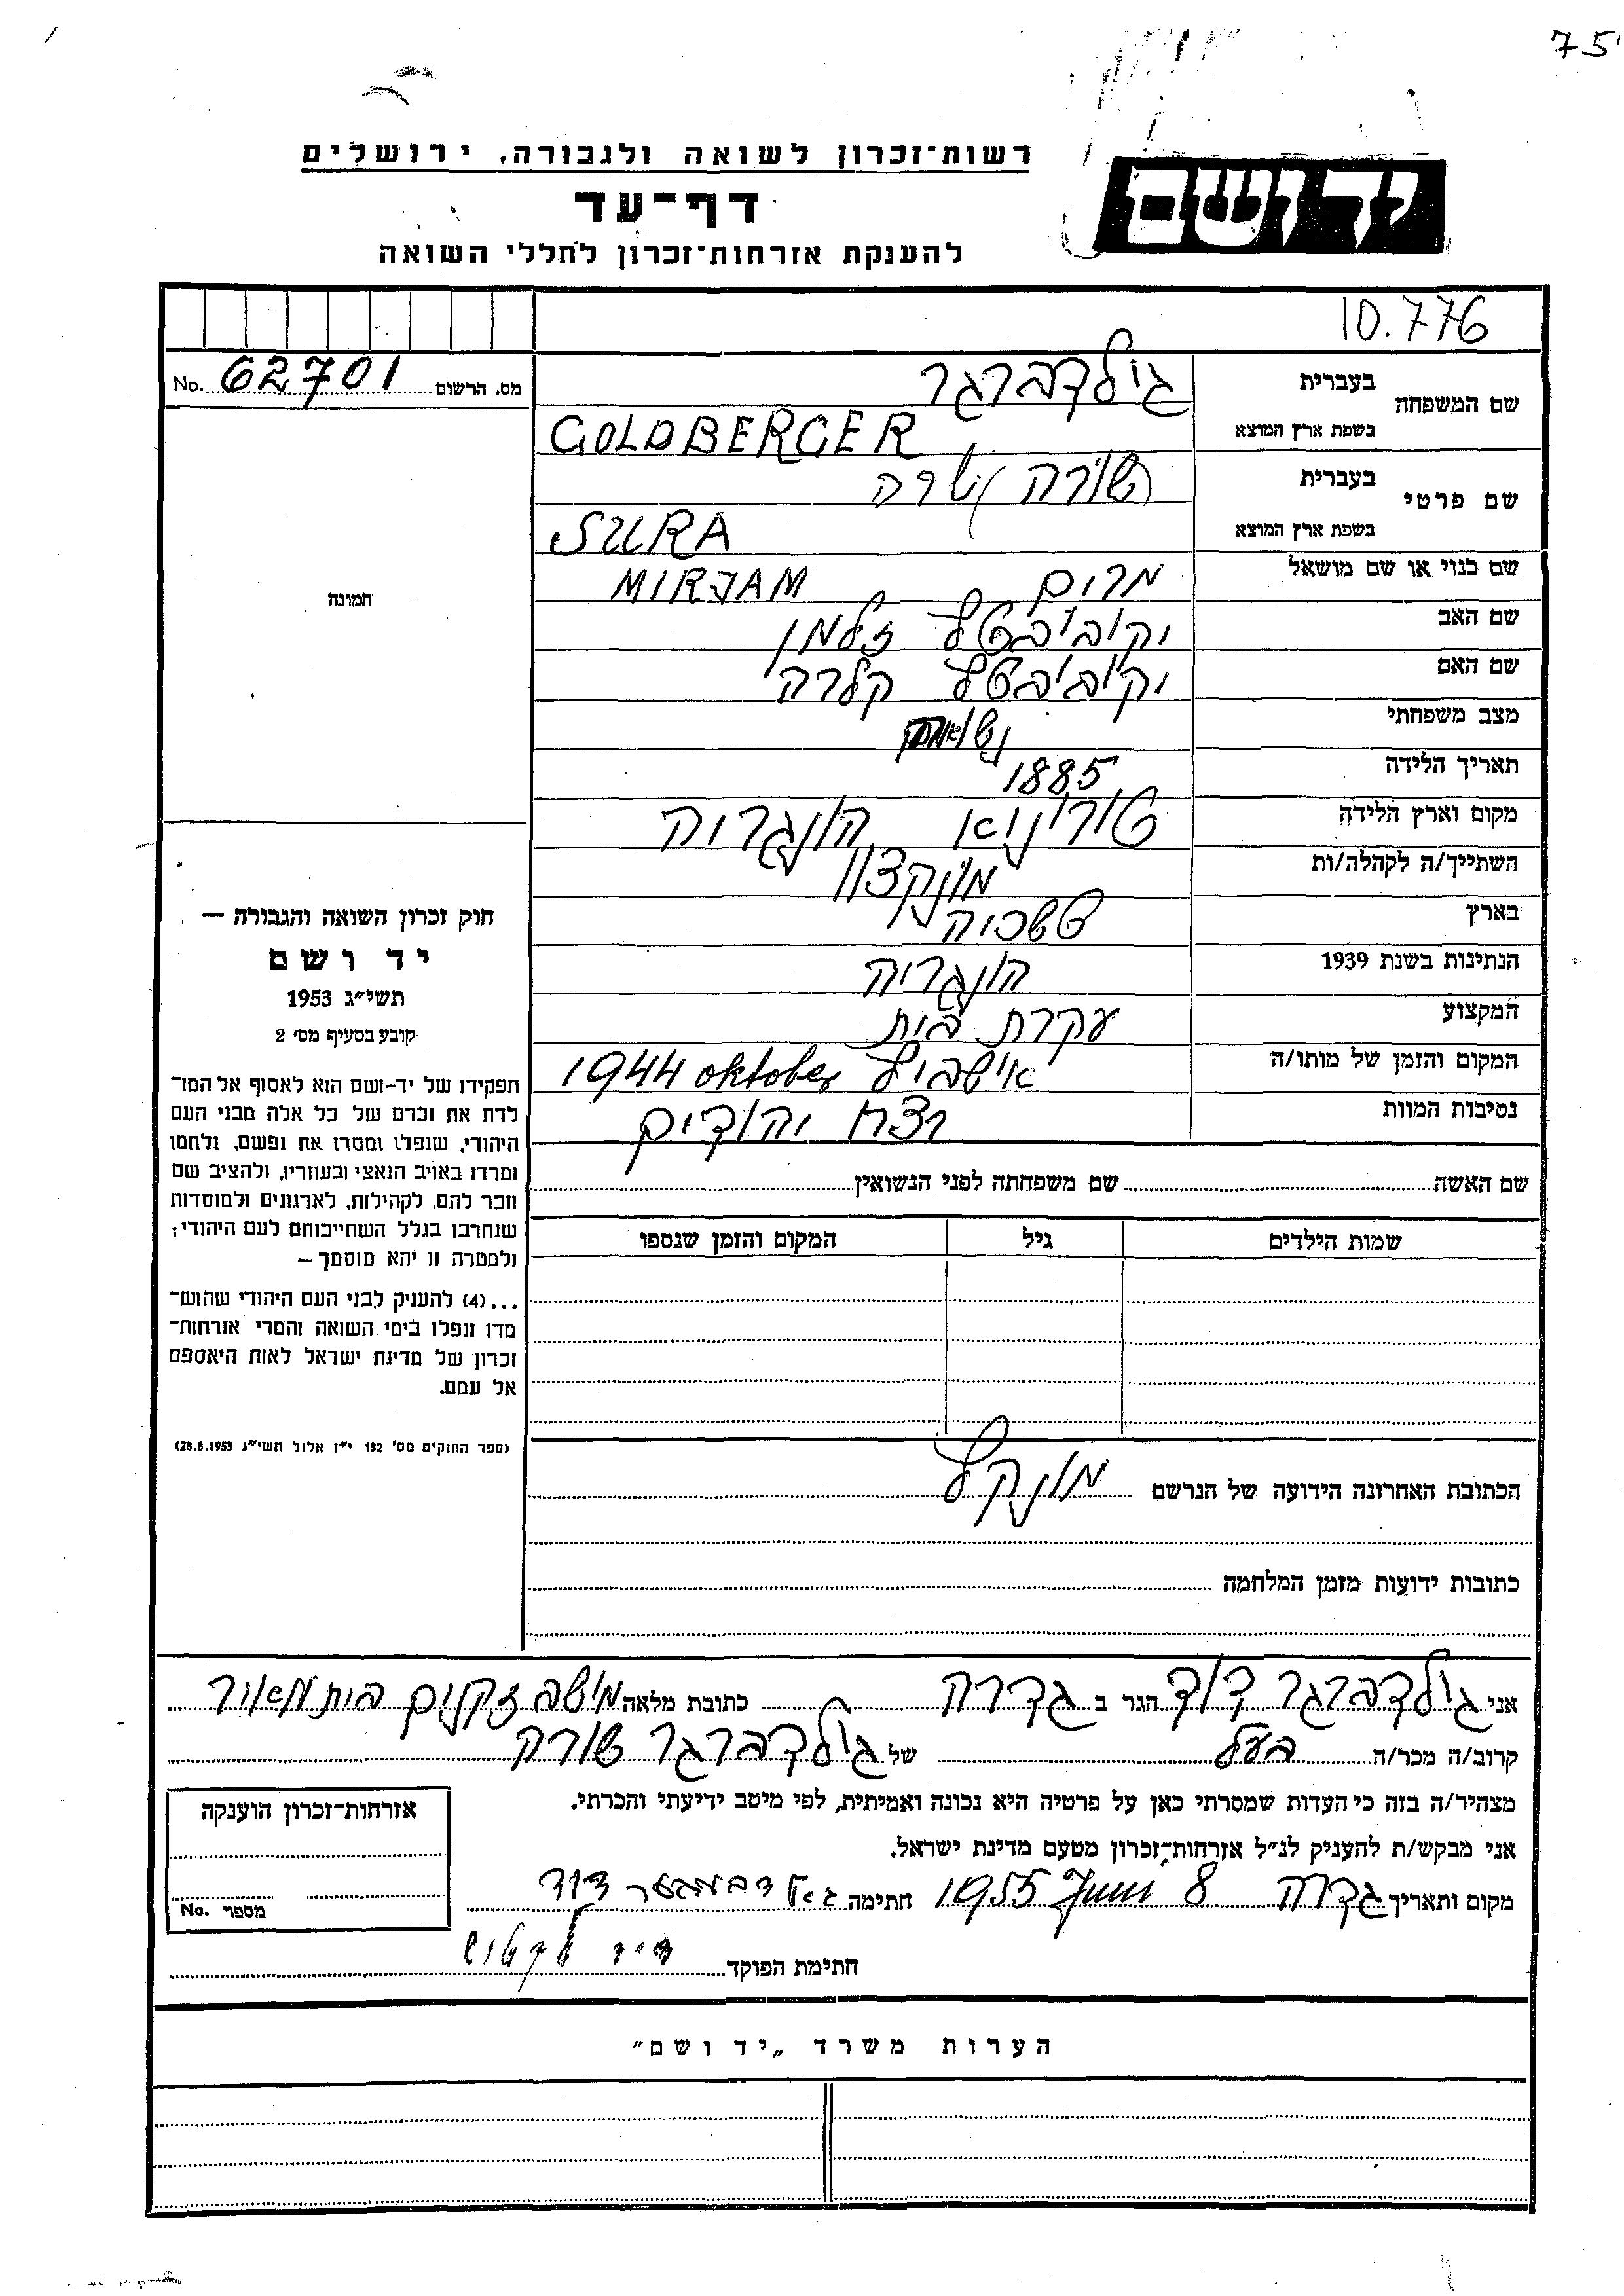 75
רשות־זכרון לשואה ולגבורה, ירושלים
יד ושם
דף־עד
להענקת אזרחות־זכרון לחללי השואה
10.776
No. 62701 מס. הרשום
שם המשפחה בעברית גולדברגר
בשפת ארץ המוצא GOLDBERGER
שם פרטי בעברית שורה
בשפת ארץ המוצא SURA
שם כנוי או שם מושאל מרים MIRJAM
שם האב יקובוביטש זלמן
שם האם יקובוביטש קלרה
מצב משפחתי
תאריך הלידה 1885
מקום וארץ הלידה הונגריה
השתייך/ה לקהלה/ות
בארץ
הנתינות בשנת 1939 הונגריה
המקצוע עקרת בית
המקום והזמן של מותו/ה oktober 1944
נסיבות המוות רצח יהודים
שם האשה שם משפחתה לפני הנשואין
שמות הילדים גיל המקום והזמן שנספו
הכתובת האחרונה הידועה של הנרשם
כתובות ידועות מזמן המלחמה
תמונה
חוק זכרון השואה והגבורה —
יד ושם
תשי״ג 1953
קובע בסעיף מס׳ 2
תפקידו של יד-ושם הוא לאסוף אל המו־
לדת את זכרם של כל אלה מבני העם
היהודי, שנפלו ומסרו את נפשם, נלחמו
ומרדו באויב הנאצי ובעוזריו, ולהציב שם
וזכר להם, לקהילות, לארגונים ולמוסדות
שנחרבו בגלל השתייכותם לעם היהודי;
ולמטרה זו יהא מוסמך —
...(4) להעניק לבני העם היהודי שהוש־
מדו ונפלו בימי השואה והמרי אזרחות־
זכרון של מדינת ישראל לאות היאספם
אל עמם.
(ספר החוקים מס׳ 132 י״ז אלול תשי״ג 28.8.1953)
אני גולדברגר דוד הגר ב גדרה כתובת מלאה מושב זקנים בית מאיר
קרוב/ה מכר/ה בעל של גולדברגר שורה
מצהיר/ה בזה כי העדות שמסרתי כאן על פרטיה היא נכונה ואמיתית, לפי מיטב ידיעתי והכרתי.
אני מבקש/ת להעניק לנ״ל אזרחות־זכרון מטעם מדינת ישראל.
מקום ותאריך גדרה 8 Juni 1955 חתימה דוד
חתימת הפוקד
אזרחות־זכרון הוענקה
מספר No.
הערות משרד „יד ושם״